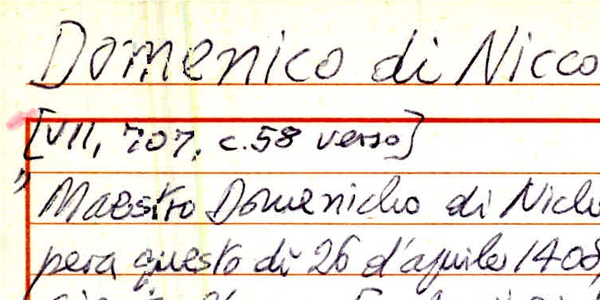 Domenico di Nicco
[VII, 707, c. 58 verso]
" Maestro Domenicho di Nicho
pera questo dì 26 d'aprile 1408